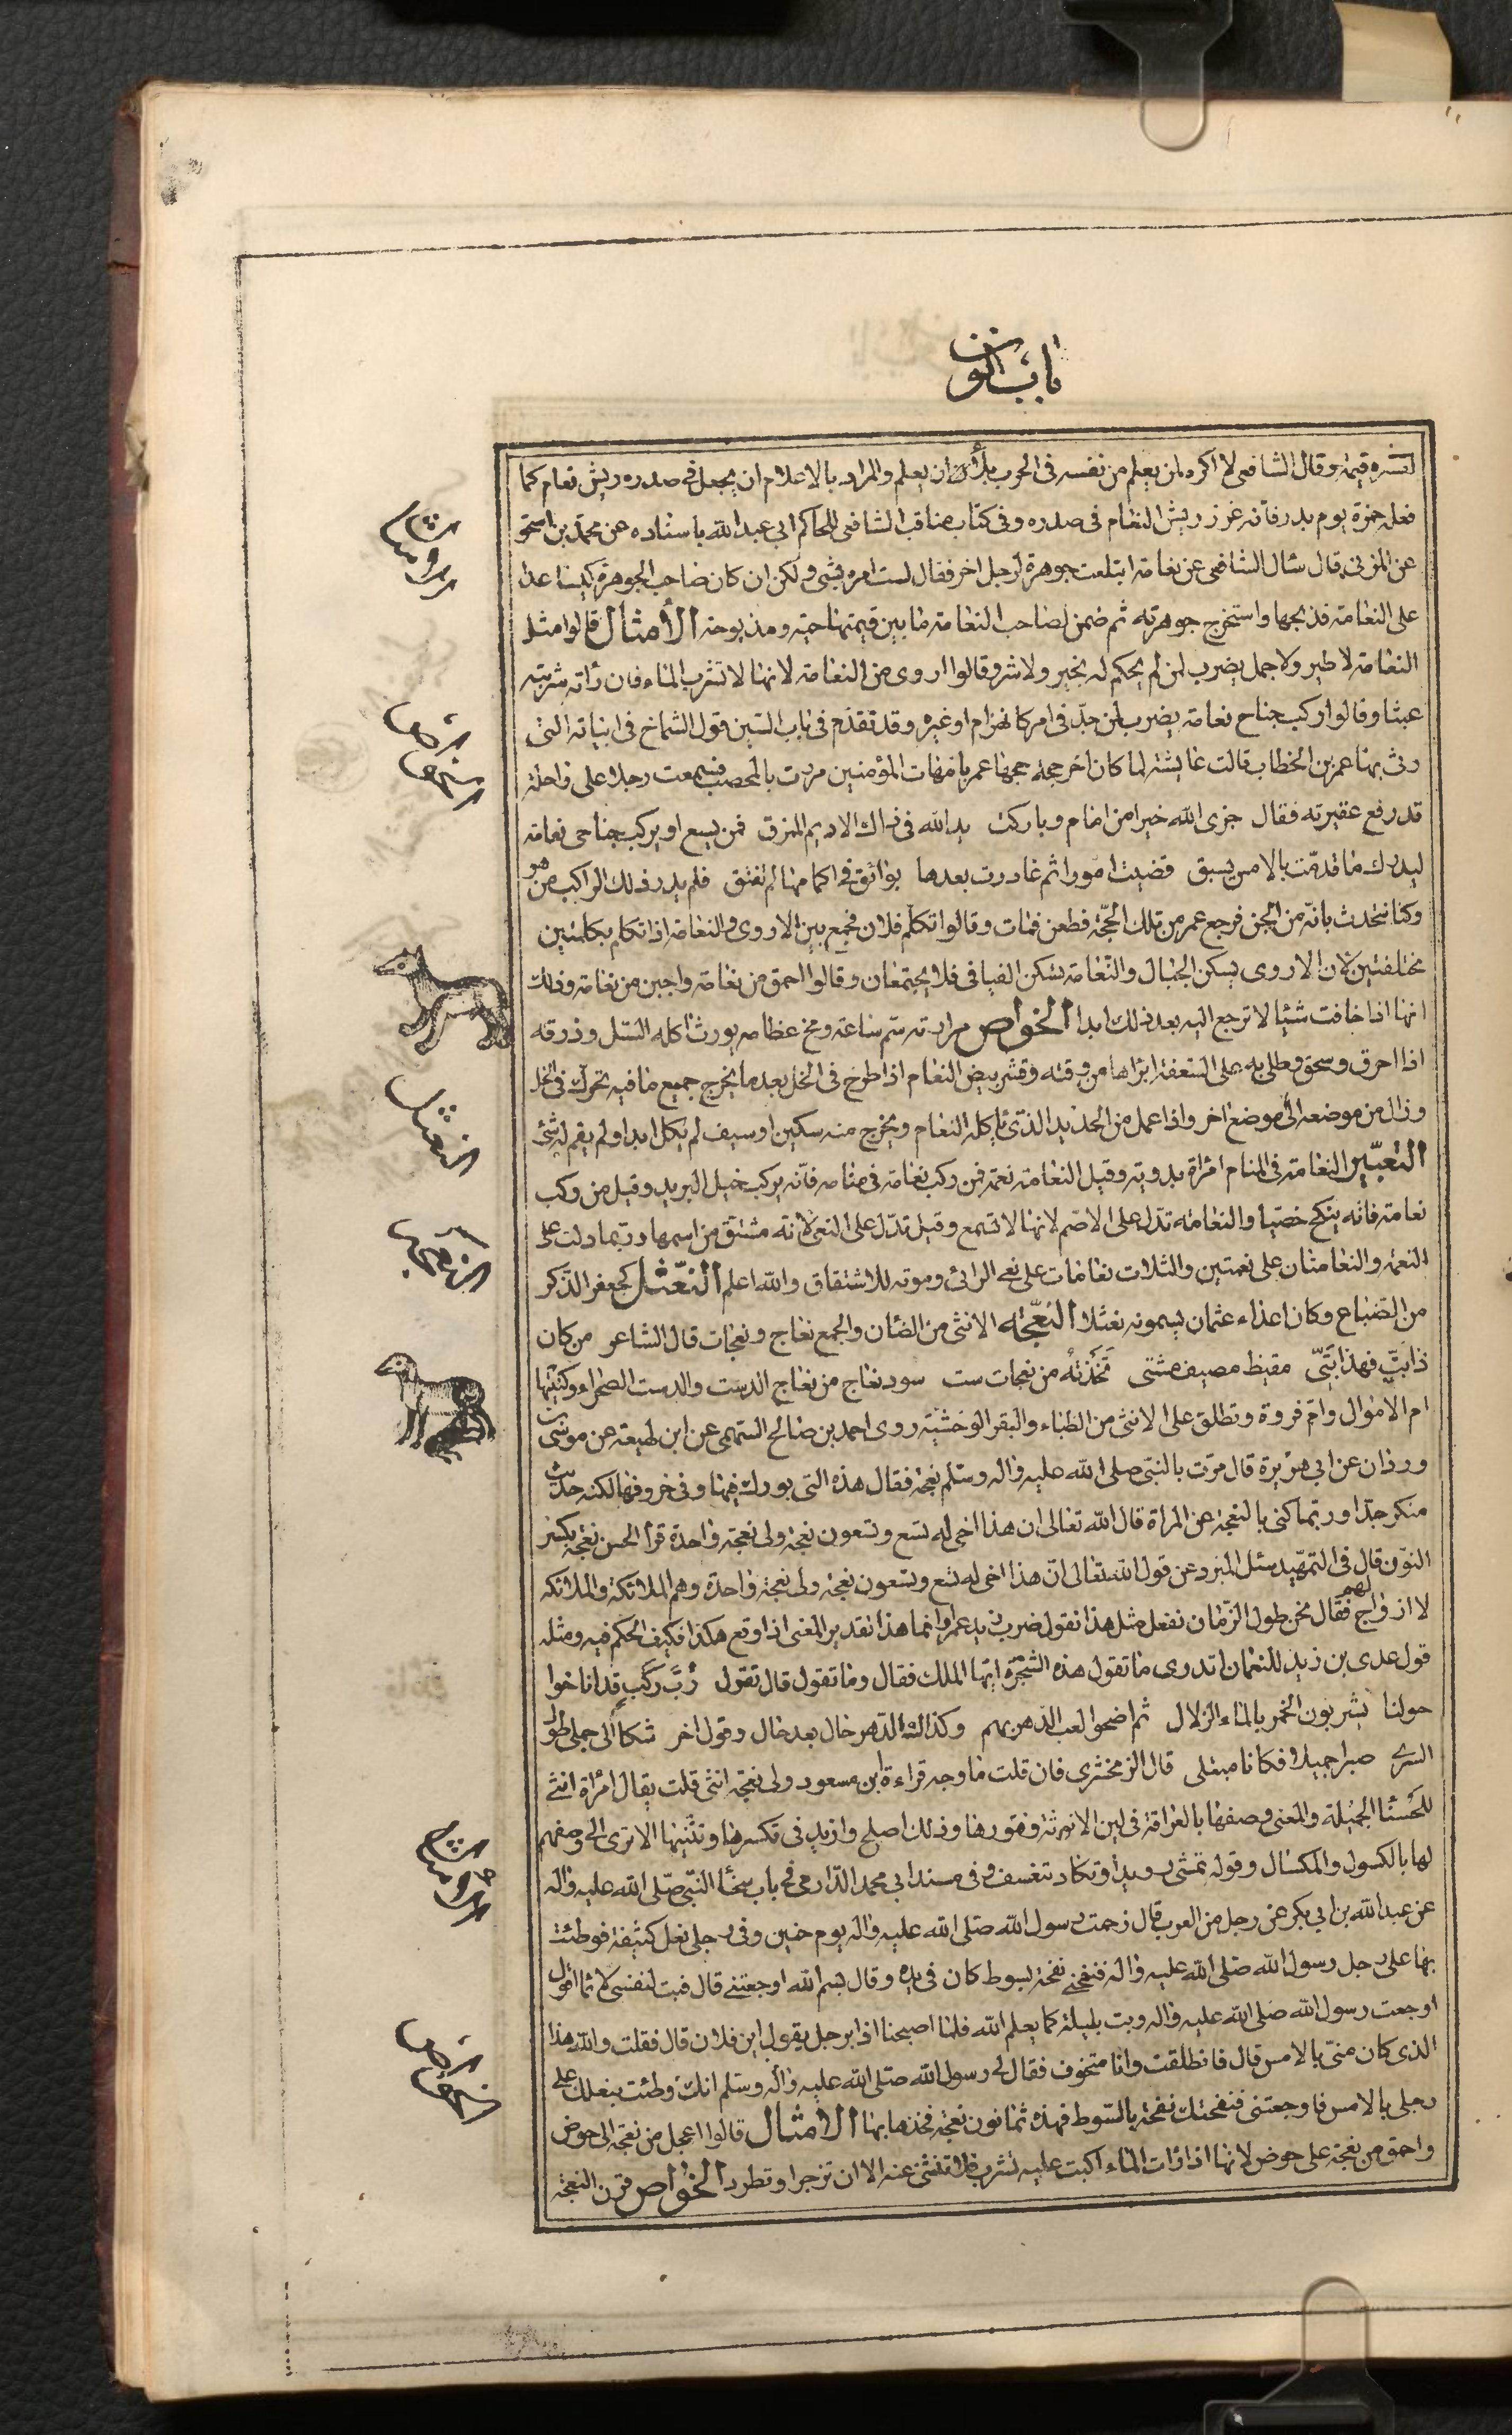 باب النون
لقشره قيمة وقال الشافعى لا اكره لمن يعلم من نفسه فى الحرب بلاء ان يعلم والمراد بالاعلام ان يجعل فى صدره ريش نعام كما
فعله حمزة يوم بدر فانه غرز ريش النعام فى صدره وفى كتاب مناقب الشافعى للحاكم ابى عبد الله باسناده عن محمد بن اسحق
عن المزنى قال سئل الشافعى عن نعامة ابتلعت جوهرة لرجل اخر فقال لست امره بشئ ولكن ان كان صاحب الجوهرة كيسا عدا
على النعامة فذبحها واستخرج جوهرته ثم ضمن لصاحب النعامة ما بين قيمتها حية ومذبوحة الأمثال قالوا مثل
النعامة لا طير ولا جمل يضرب لمن لم يحكم له بخير ولا شر وقالوا اروى من النعامة لانها لا تشرب الماء فان رأته شربته
عبثا وقالوا ركب جناح نعامة يضرب لمن جد فى امر كانهزام او غيره وقد تقدم فى باب السين قول الشماخ فى ابياته التى
رثى بها عمر بن الخطاب قالت عايشة لما كان اخر حجة حجها عمر بامهات المؤمنين مررت بالمحصب فسمعت رجلا على راحلة
قد رفع عقيرته فقال جزى الله خيرا من امام وباركت يد الله فى ذاك الاديم الممزق فمن يسع او يركب جناحى نعامة
ليدرك ما قدمت بالامس يسبق قضيت امورا ثم غادرت بعدها بوائق فى اكمامها لم تفتق فلم يدر ذلك الراكب من هو
وكنا نتحدث بانه من الجن فرجع عمر من تلك الحجة فطعن فمات وقالوا تكلم فلان فجمع بين الاروى والنعامة اذا تكلم بكلمتين
مختلفتين لان الاروى يسكن الجبال والنعامة تسكن الفيافى فلا يجتمعان وقالوا احمق من نعامة واجبن من نعامة وذلك
انها اذا خافت شيئا لا ترجع اليه بعد ذلك ابدا الخواص مرارته سم ساعة ومخ عظامه يورث اكله السل وذرقه
اذا احرق وسحق وطلى به على السعفة ابراها من وقته وقشر بيض النعام اذا طرح فى الخل بعد ما يخرج جميع ما فيه تحرك فى الخل
وزال من موضعه الى موضع اخر واذا عمل من الحديد الذى ياكله النعام ويخرج منه سكين او سيف لم يكل ابدا ولم يقم له شئ
التعبير النعامة فى المنام امراة بدوية وقيل النعامة نعمة فمن ركب نعامة فى منامه فانه يركب خيل البريد وقيل من ركب
نعامة فانه ينكح خصيا والنعامة تدل على الاصم لانها لا تسمع وقيل تدل على النعى لانه مشتق من اسمها وربما دلت على
النعمة والنعامتان على نعمتين والثلاث نعامات على نعى الرائى وموته للاشتقاق والله اعلم النعثل كجعفر الذكر
من الضباع وكان اعداء عثمان يسمونه نعثلا النعجة الانثى من الضان والجمع نعاج ونعجات قال الشاعر من كان
ذا بت فهذا بتى مقيظ مصيف مشتى تخذته من نعجات ست سود نعاج من نعاج الدست والدست الصحراء وكنيتها
ام الاموال وام فروة وتطلق على الانثى من الظباء والبقر الوحشية روى احمد بن صالح السهمى عن ابن لهيعة عن موسى بن
وردان عن ابى هريرة قال مرت بالنبى صلى الله عليه واله وسلم نعجة فقال هذه التى بورك فيها وفى خروفها لكنه حديث
منكر جدا وربما كنى بالنعجة عن المراة قال الله تعالى ان هذا اخى له تسع وتسعون نعجة ولى نعجة واحدة قرا الحسن نعجة بكسر
النون قال فى التمهيد سئل المبرد عن قول الله تعالى ان هذا اخى له تسع وتسعون نعجة ولى نعجة واحدة وهم الملائكة والملائكة
لا ازواج لهم فقال نحن طول الزمان نفعل مثل هذا نقول ضرب زيد عمرا وانما هذا تقدير المعنى اذا وقع هكذا فكيف الحكم فيه ومثله
قول عدى بن زيد للنعمان اتدرى ما تقول هذه الشجرة ايها الملك فقال وما تقول قال تقول رب ركب قد اناخوا
حولنا يشربون الخمر بالماء الزلال ثم اضحوا لعب الدهر بهم وكذاك الدهر حال بعد حال وقول اخر شكا الى جملى طول
السرى صبرا جميلا فكلانا مبتلى قال الزمخشرى فان قلت ما وجه قراءة ابن مسعود ولى نعجة انثى قلت يقال امراة انثى
للحسنا الجميلة والمعنى وصفها بالعراقة فى لين الانوثة وفتورها وذلك اصلح وازيد فى تكسرها وتثنيها الا ترى الى وصفهم
لها بالكسول والمكسال وقوله تمشى رويدا وتكاد تنغسف وفى مسند ابى محمد الدارمى فى باب سخا النبى صلى الله عليه واله
عن عبد الله بن ابى بكر عن رجل من العرب قال زحمت رسول الله صلى الله عليه واله يوم حنين وفى رجلى نعل كثيفة فوطئت
بها على رجل رسول الله صلى الله عليه واله فنفحنى نفحة بسوط كان فى يده وقال بسم الله اوجعتنى قال فبت لنفسى لائما اقول
اوجعت رسول الله صلى الله عليه واله وبت بليلة كما يعلم الله فلما اصبحنا اذا برجل يقول اين فلان قال فقلت والله هذا
الذى كان منى بالامس قال فانطلقت وانا متخوف فقال لى رسول الله صلى الله عليه واله وسلم انك وطئت بنعلك على
رجلى بالامس فاوجعتنى فنفحتك نفحة بالسوط فهذه ثمانون نعجة فخذها بها الأمثال قالوا اعجل من نعجة الى حوض
واحمق من نعجة على حوض لانها اذا رات الماء اكبت عليه تشرب فلا تنثنى عنه الا ان تزجر او تطرد الخواص قرن النعجة
الامثال
الخواص
النعثل
النعجة
الامثال
الخواص